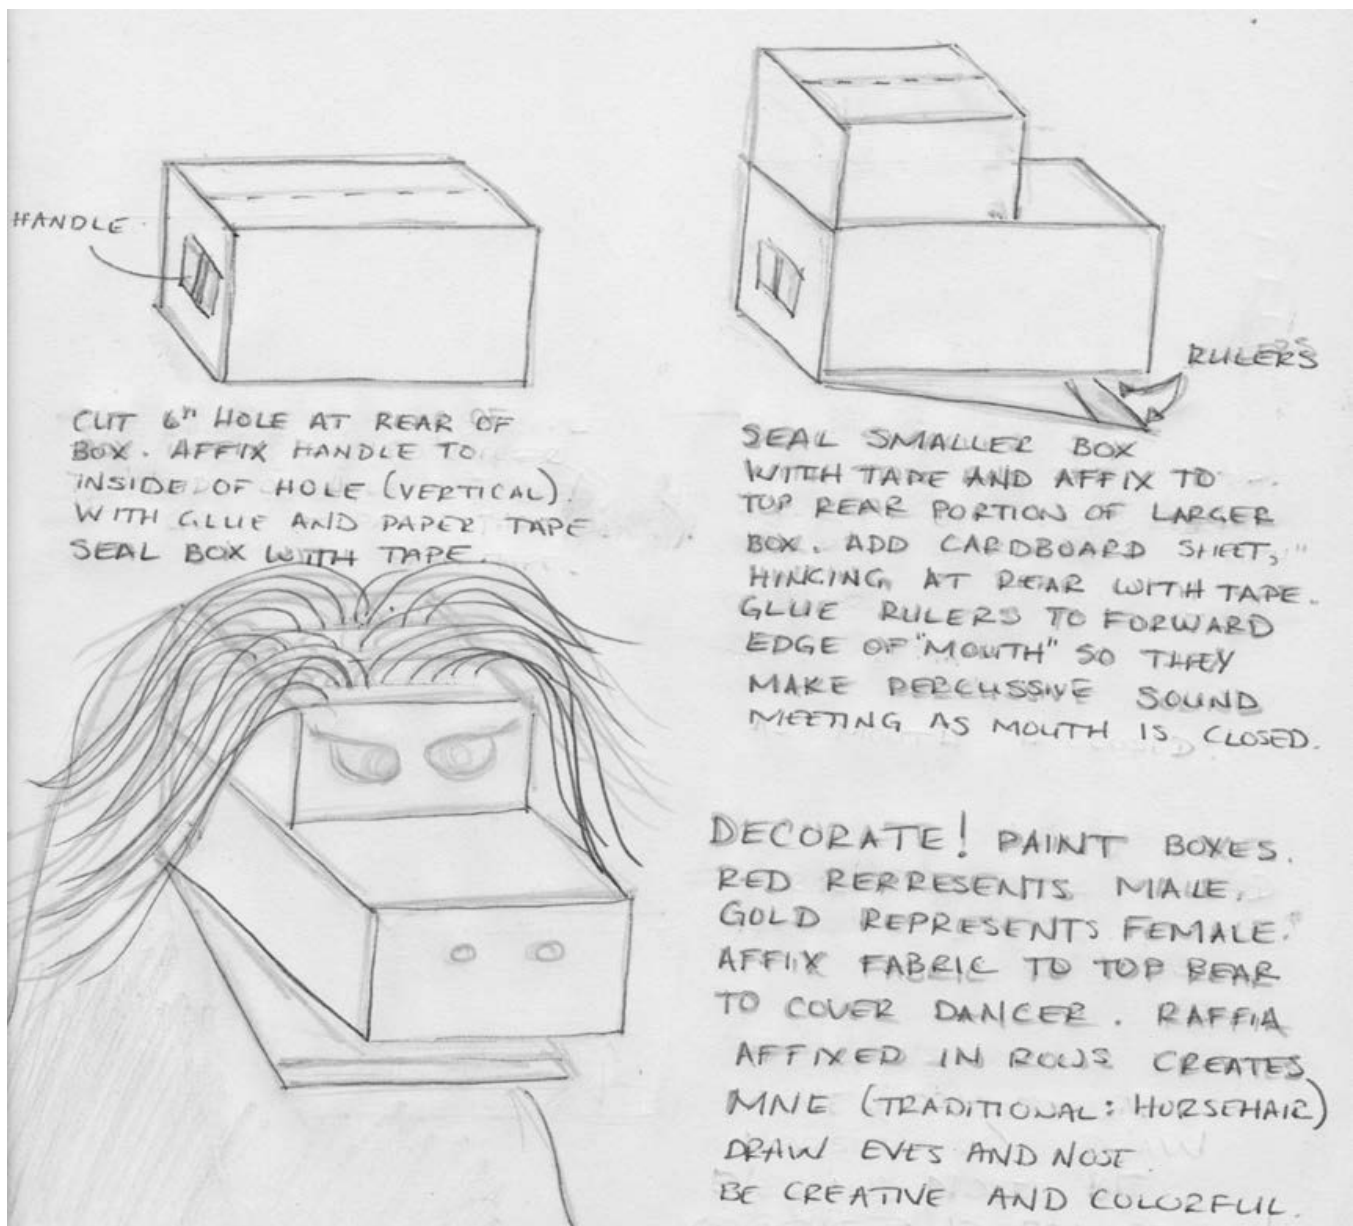 HANDLE
CUT 6" HOLE AT REAR OF
BOX. AFFIX HANDLE TO
INSIDE OF HOLE (VERTICAL)
WITH GLUE AND PAPER TAPE.
SEAL BOX WITH TAPE.
RULERS
SEAL SMALLER BOX
WITH TAPE AND AFFIX TO
TOP REAR PORTION OF LARGER
BOX. ADD CARDBOARD SHEET,
HINGING AT REAR WITH TAPE.
GLUE RULERS TO FORWARD
EDGE OF "MOUTH" SO THEY
MAKE PERCUSSIVE SOUND
MEETING AS MOUTH IS CLOSED.
DECORATE! PAINT BOXES.
RED REPRESENTS MALE.
GOLD REPRESENTS FEMALE.
AFFIX FABRIC TO TOP REAR
TO COVER DANCER. RAFFIA
AFFIXED IN ROWS CREATES
MNE (TRADITIONAL: HORSEHAIR)
DRAW EYES AND NOSE.
BE CREATIVE AND COLORFUL.